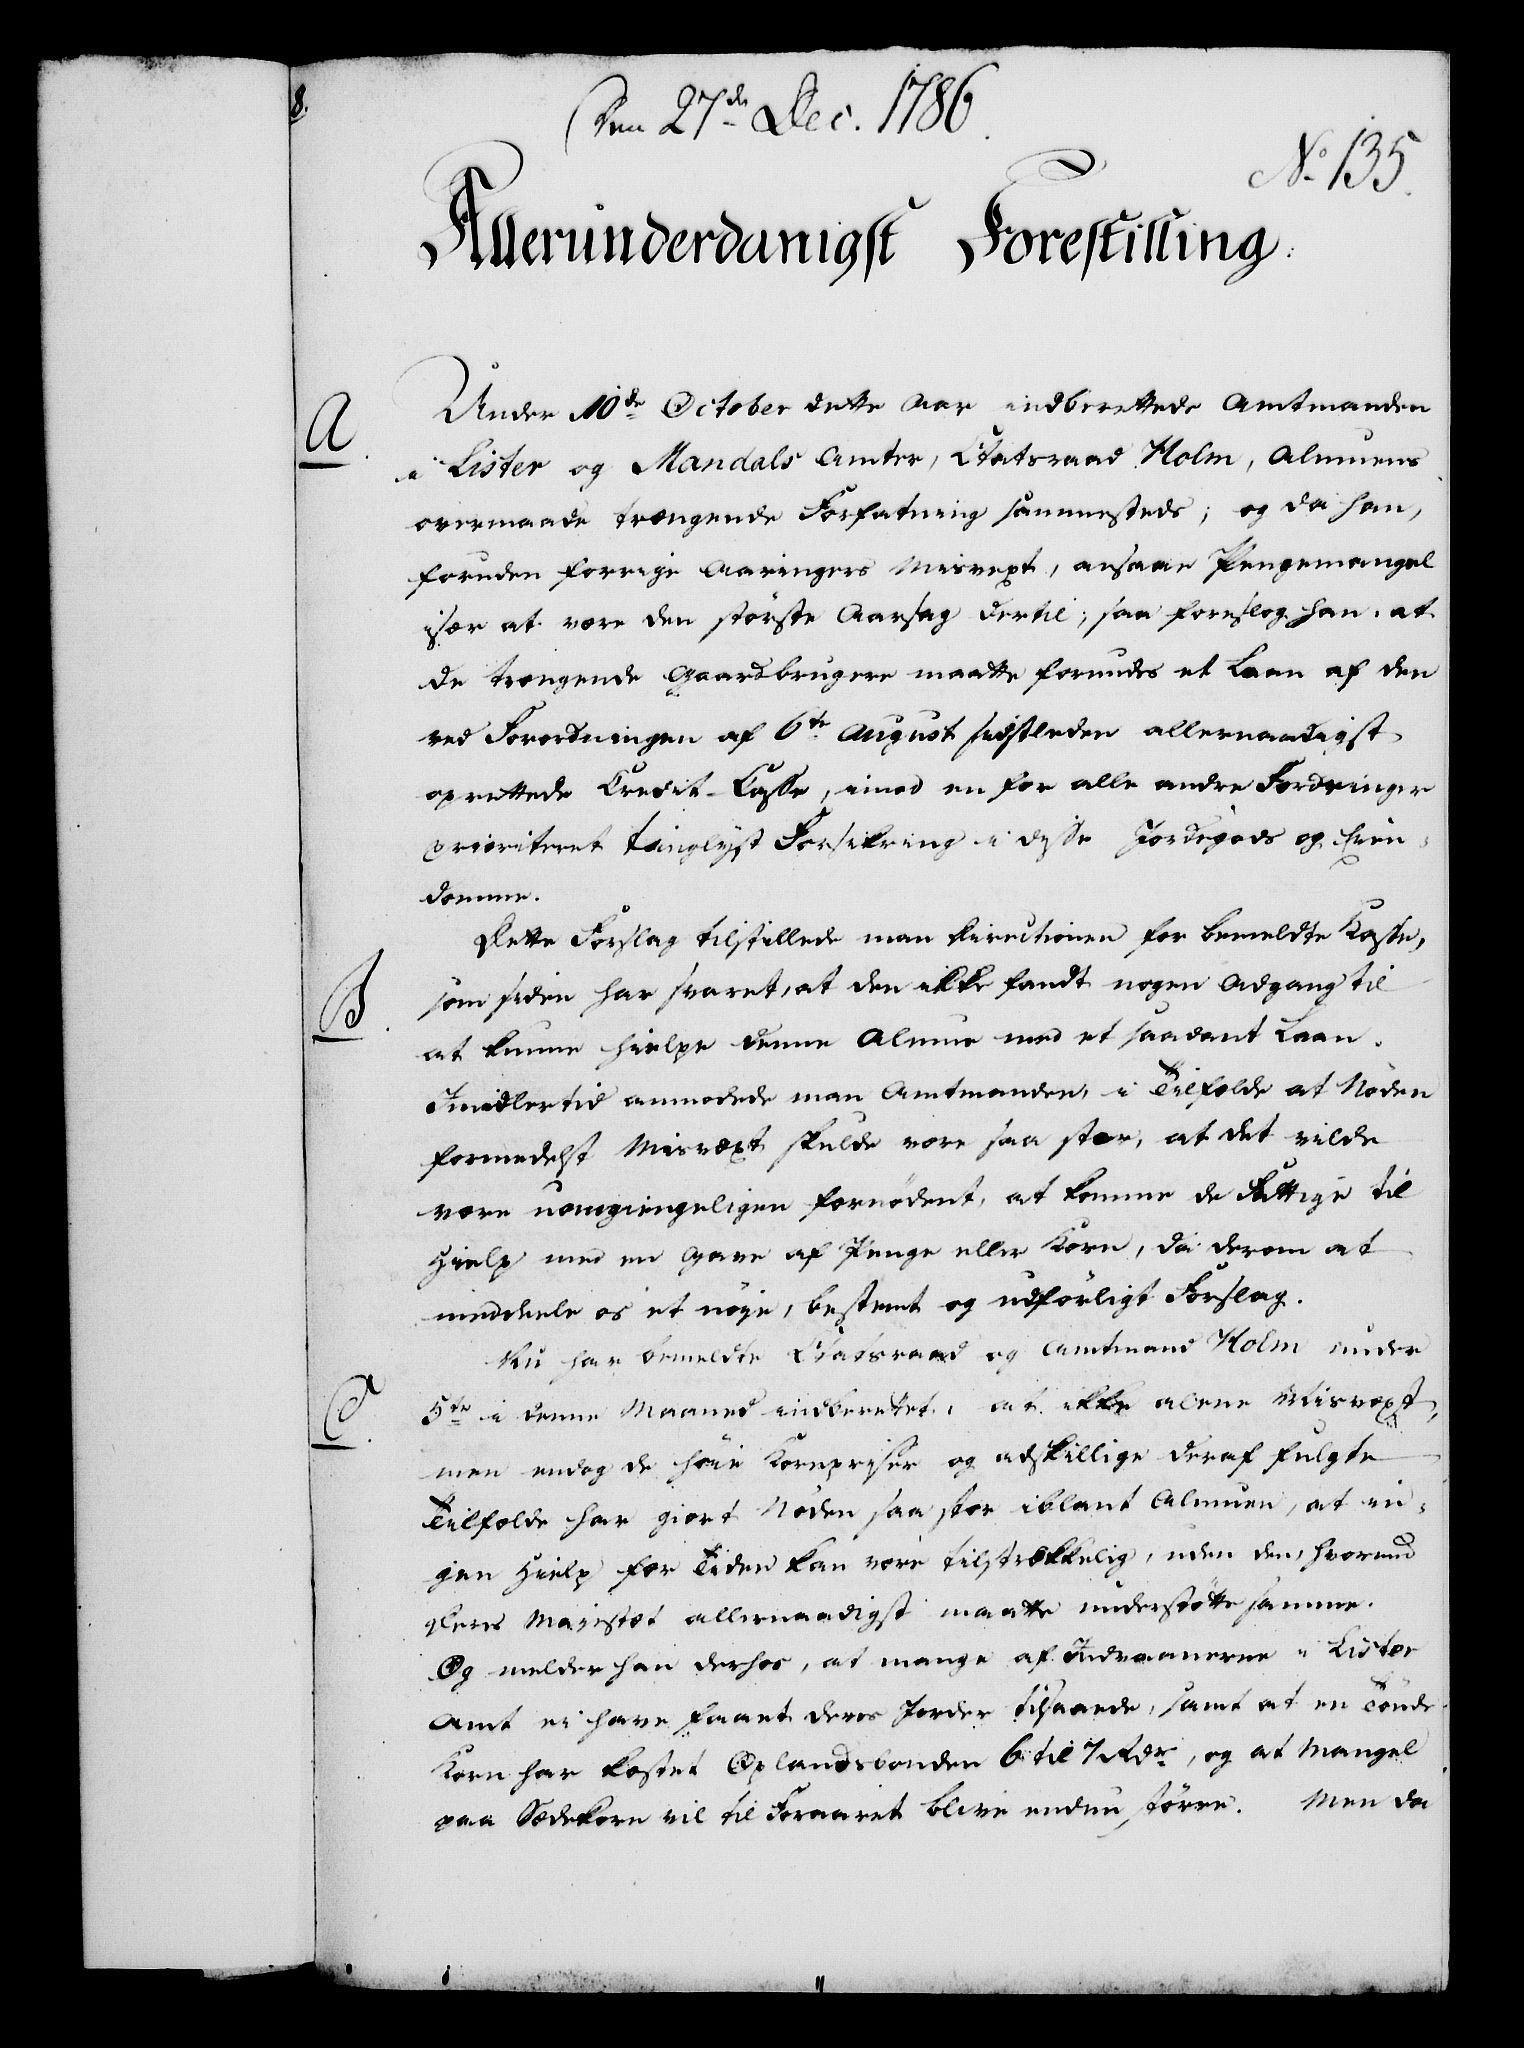 8.
Den 27de Dec. 1786.
No 135.
Allerunderdanigst Forestilling.
A.
Under 10de October dette Aar indberettede Amtmanden
i Lister og Mandals Amter, Etatsraad Holm, Almuens
overmaade trængende Forfatning sammesteds; og da han,
foruden forrige Aaringers Misvext, ansaae Pengemangel
især at være den störste Aarsag dertil; saa foreslog han, at
de trængende Gaardbrugere maatte forundes et Laan af den
ved Forordningen af 6te August sidstleden allernaadigst
oprettede Credit-Casse, imod en for alle andre Fordringer
prioriteret tinglyst Forsikring i disse Jordegods og Eien-
domme.
B.
Dette Forslag tilstillede man Directionen for bemeldte Kasse,
som siden har svaret, at den ikke fandt nogen Adgang til
at kunne hielpe denne Almue med et saadant Laan.
Imidlertid anmodede man Amtmanden, i Tilfælde at Nöden
formedelst Misvæxt skulde være saa stor, at det vilde
være uomgiengeligen fornödent, at komme de Fattige til
Hielp med en Gave af Penge eller Korn, da derom at
meddeele os et nöje, bestemt og udförligt Forslag.
C.
Nu har bemeldte Etatsraad og Amtmand Holm under
5te i denne Maaned indberettet, at ikke alene Misvæxt,
men endog de höie Kornpriser og adskillige deraf fulgte
Tilfælde har giort Nöden saa stor iblant Almuen, at in-
gen Hielp for Tiden kan være tilstrækkelig, uden den, hvormed
Deres Majestæt allernaadigst maatte understötte samme.
Og melder han derhos, at mange af Indvaanerne i Lister
Amt ei have faaet deres Jorder tilsaaede, samt at en Tönde
Korn har kostet Oplandsbonden 6 til 7 Rdr, og at Mangel
paa Sædekorn vil til Foraaret blive endnu större. Men da